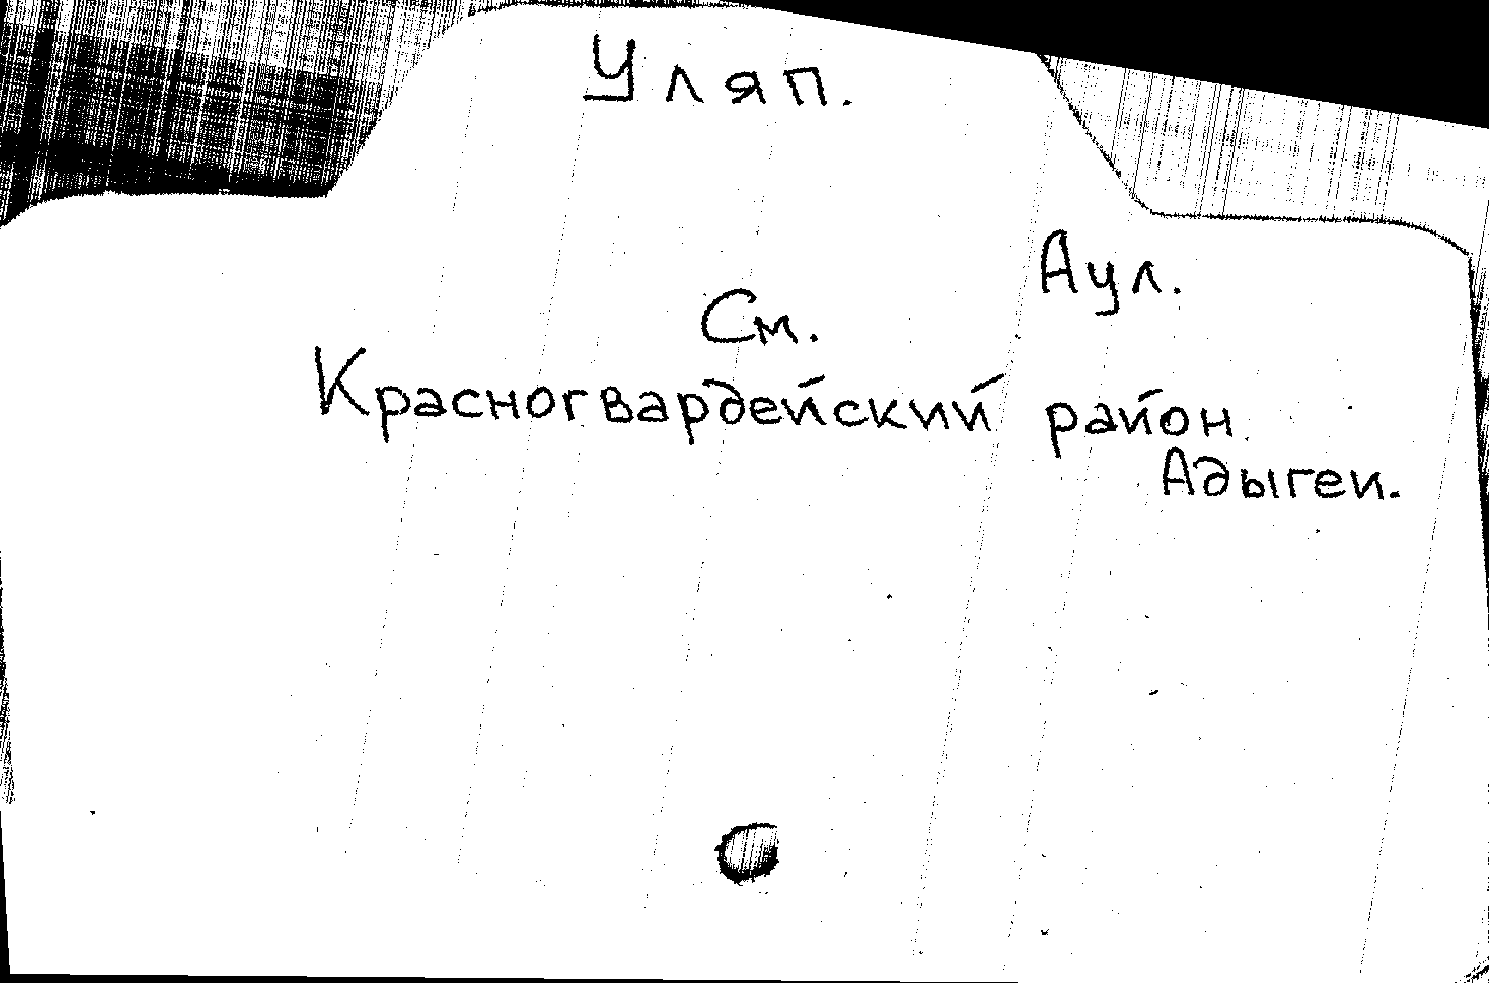 Уляп.
Аул.
См.
Красногвардейский район
Адыгеи.